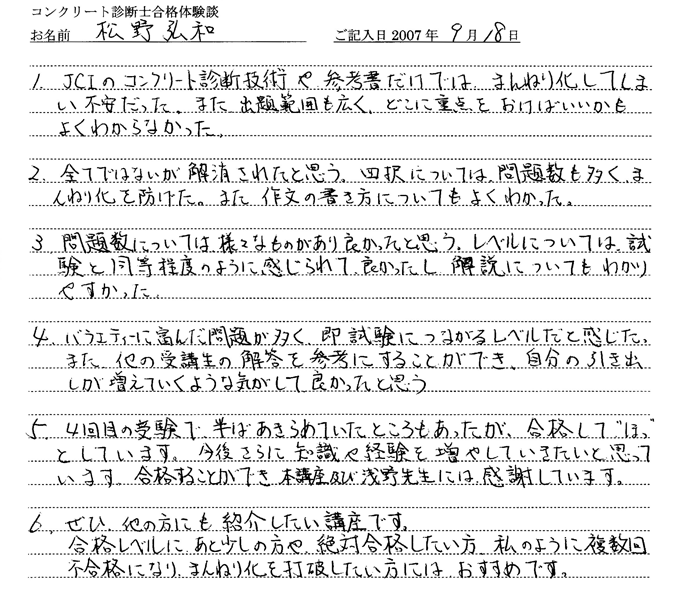 コンクリート診断士合格体験談
お名前 松野弘和 ご記入日2007年9月18日
1. JCIのコンクリート診断技術や参考書だけでは、まんねり化してしま
い不安だった。また出題範囲も広く、どこに重点をおけばいいかも
よくわからなかった。
2. 全てではないが解消されたと思う。四択については、問題数も多く、ま
んねり化を防げた。また作文の書き方についてもよくわかった。
3. 問題数については様々なものがあり良かったと思う。レベルについては、試
験と同等程度のように感じられて良かったし解説についてもわかり
やすかった。
4. バラエティーに富んだ問題が多く、即試験につながるレベルだと感じた。
また、他の受講生の解答を参考にすることができ、自分の引き出
しが増えていくような気がして良かったと思う
5. 4回目の受験で、半ばあきらめていたところもあったが、合格して"ほっ"
としています。今後さらに知識や経験を増やしていきたいと思って
います。合格することができ本講座及び浅野先生には、感謝しています。
6. ぜひ、他の方にも紹介したい講座です。
合格レベルにあと少しの方や、絶対合格したい方、私のように複数回
不合格になり、まんねり化を打破したい方にはおすすめです。